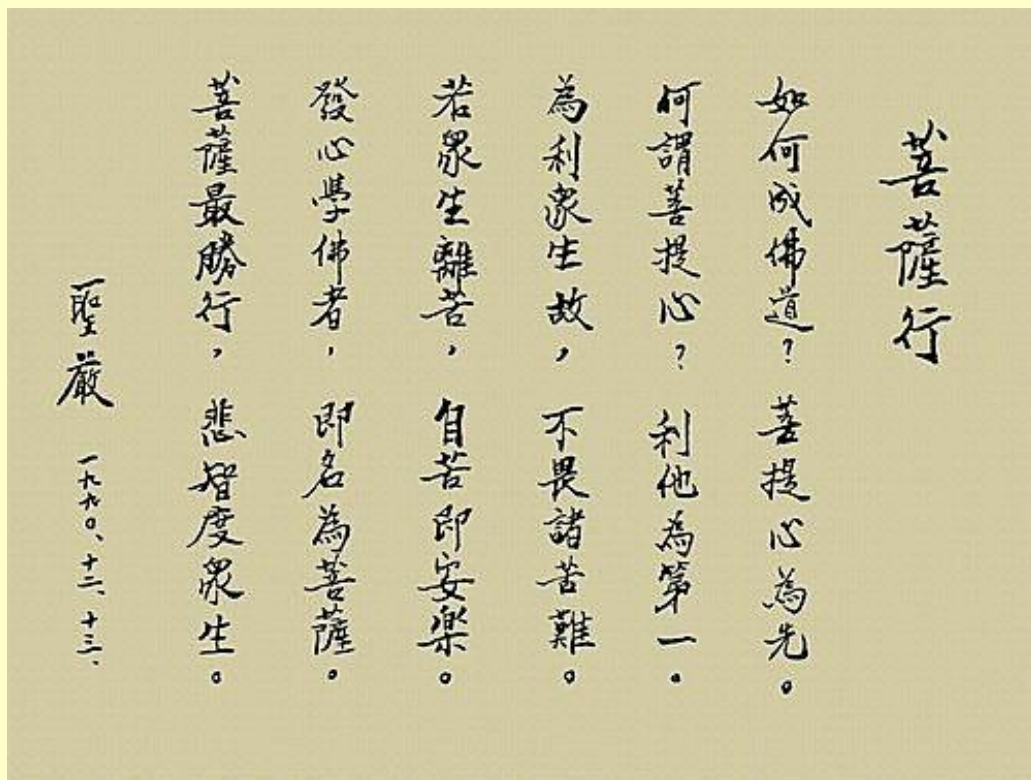 菩薩行
如何成佛道？菩提心為先。
何謂菩提心？利他為第一。
為利眾生故，不畏諸苦難。
若眾生離苦，自苦即安樂。
發心學佛者，即名為菩薩。
菩薩最勝行，悲智度眾生。
聖嚴 一九九〇、十二、十三、